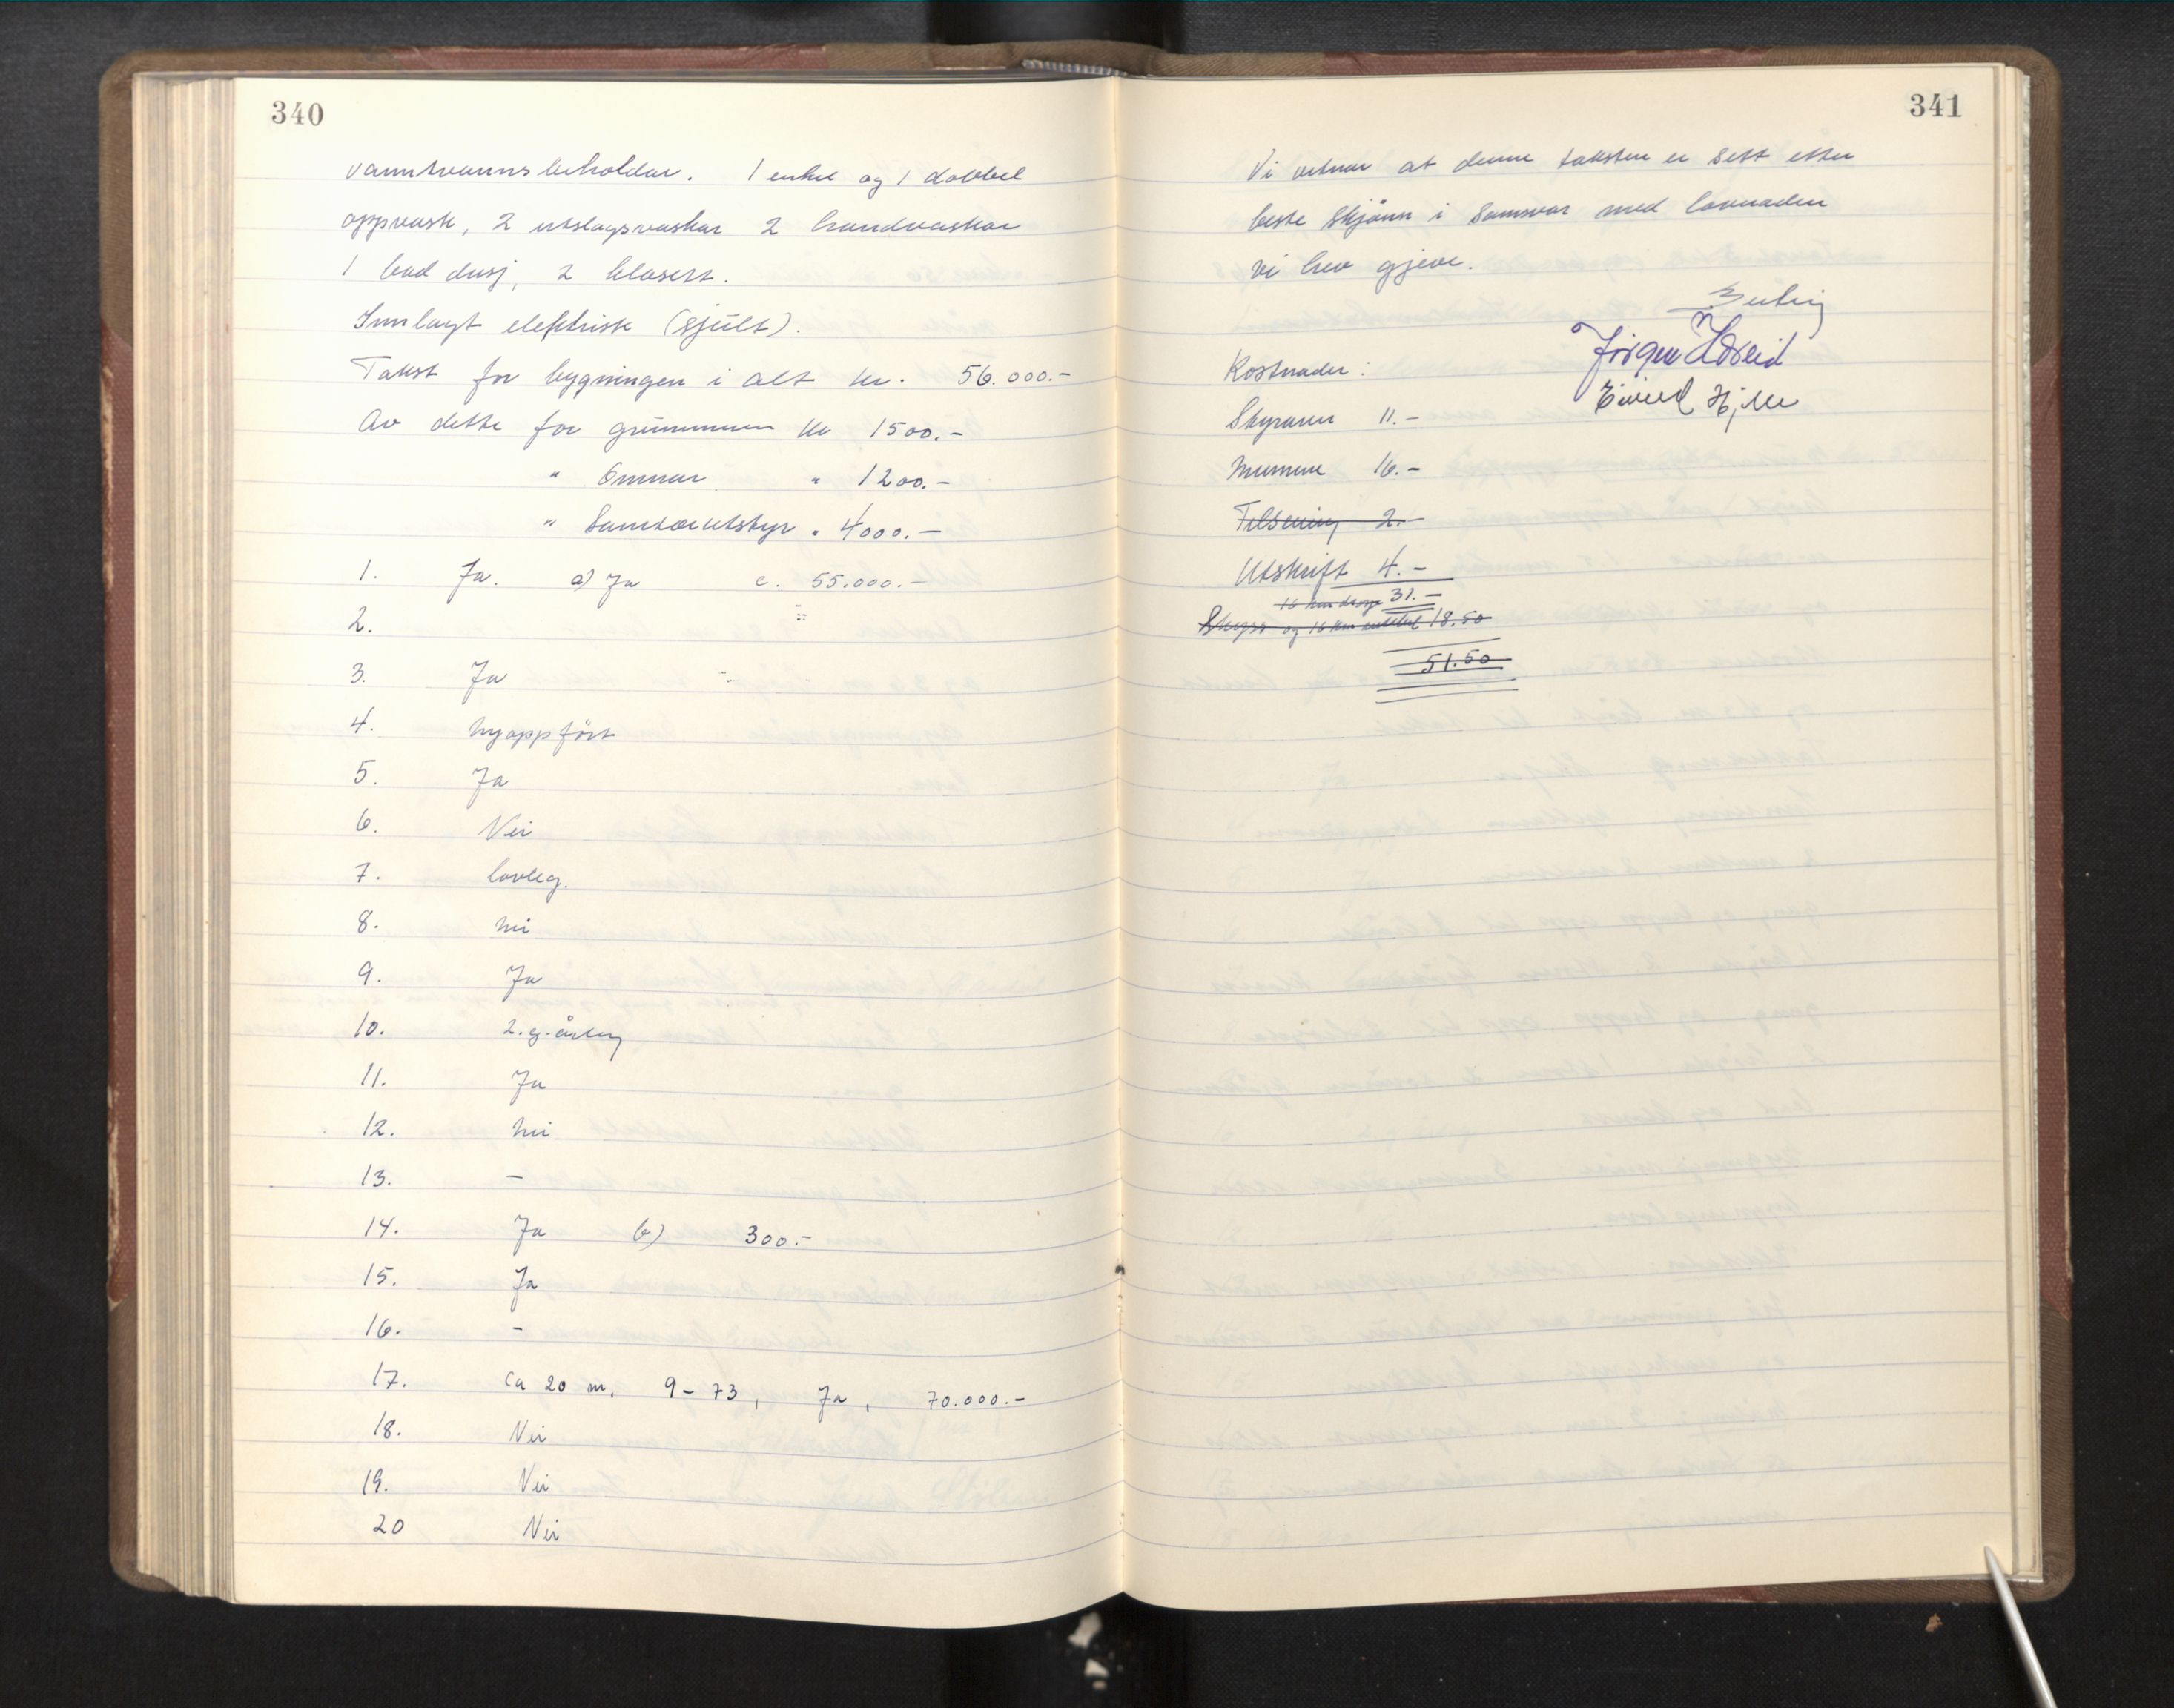 340
varmtvannsbeholdar. 1 enkel og 1 dobbel
oppvask, 2 utslagsvaskar 2 handvaskar
1 bad dusj, 2 klosett.
Innlagt elektrisk (skjult).
Takst for bygningen i alt kr. 56.000.-
Av dette for grunnmuren kr 1500.-
" Omnar " 1200.-
" Sanitærutstyr " 4000.-
1. Ja. a) Ja c. 55.000.-
2.
3. Ja
4. nyoppfört
5. Ja
6. Nei
7. lovleg.
8. nei
9. Ja
10. 2.g. årleg
11. Ja
12. nei
13. -
14. Ja b) 300.-
15. Ja
16. -
17. ca 20 m, 9-73, Ja, 70.000.-
18. Nei
19. Nei
20 Nei
341
Vi vitnar at denne taksten er sett etter
beste skjönn i samsvar med lovnaden
vi hev gjeve.
Jörgen
Eivind Hjelle
Kostnader:
Skyraren 11.-
Mennene 16.-
Tilsening 2.-
Utskrift 4.-
16 km drosje 31.-
Skyss og 16 km 18.50
51.50